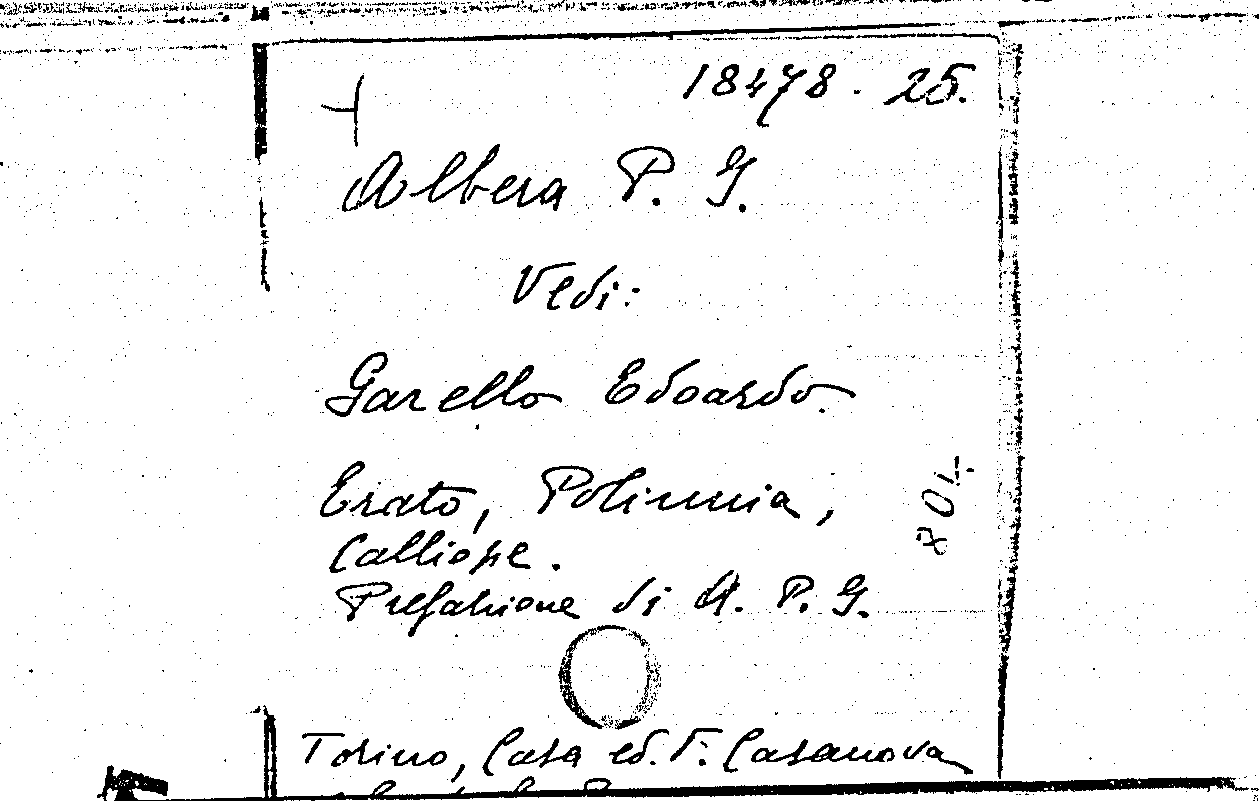 18478. 25.
Albera P. G.
Vedi:
Garello Edoardo.
Erato, Polimnia,
Calliope.
Prefazione di A. P. G.
Torino, Casa ed. F. Casanova